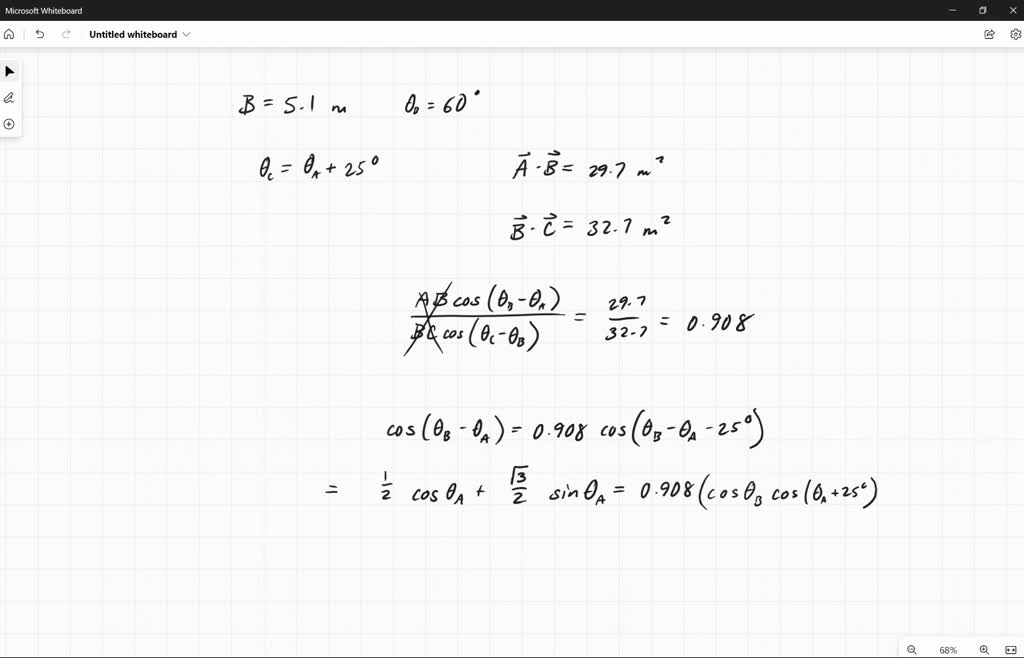 Microsoft Whiteboard
Untitled whiteboard
B = 5.1 m θ_B = 60°
θ_C = θ_A + 25° A⃗ · B⃗ = 29.7 m²
B⃗ · C⃗ = 32.7 m²
AB cos(θ_B - θ_A) / BC cos(θ_C - θ_B) = 29.7 / 32.7 = 0.908
cos(θ_B - θ_A) = 0.908 cos(θ_B - θ_A - 25°)
= 1/2 cos θ_A + √3/2 sin θ_A = 0.908(cos θ_B cos(θ_A + 25°)
68%